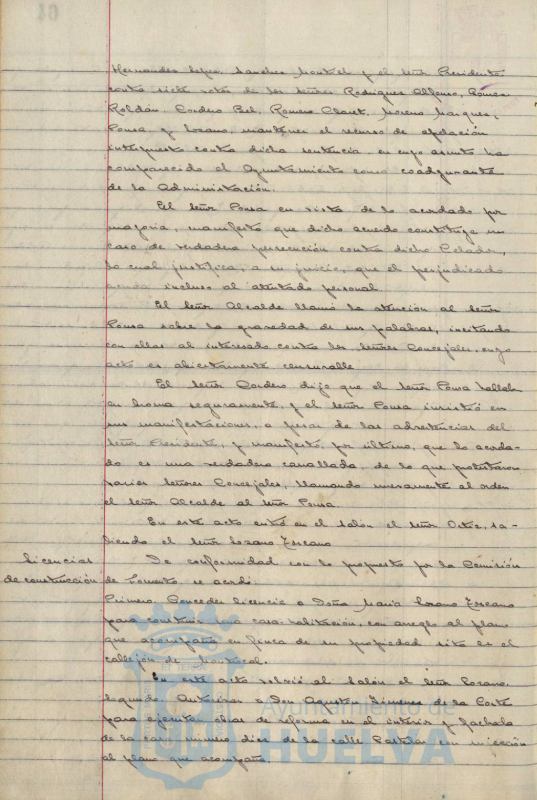 Hernandez Lopez, Sanchez Montiel y el señor Presidente
contra siete votos de los señores Rodriguez Alfonso, Gomez
Roldán, Cordero Bel, Romero Claret, Moreno Marquez,
Ponsa y Lozano, mantener el recurso de apelación
interpuesto contra dicha sentencia en cuyo asunto ha
comparecido el Ayuntamiento como coadyuvante
de la Administración.
El señor Ponsa en vista de lo acordado por
mayoria, manifestó que dicho acuerdo constituye un
caso de verdadera persecución contra dicho Celador,
lo cual justifica, a su juicio, que el perjudicado
acuda incluso al atentado personal.
El señor Alcalde llamó la atención al señor
Ponsa sobre la gravedad de sus palabras, incitando
con ellas al interesado contra los señores Concejales, cuyo
acto es abiertamente censurable.
El señor Cordero dijo que el señor Ponsa hablaba
en broma seguramente, y el señor Ponsa insistió en
sus manifestaciones, a pesar de las advertencias del
señor Presidente, y manifestó, por último, que lo acorda-
do es una verdadera canallada, de lo que protestaron
varios señores Concejales, llamando nuevamente al orden
el señor Alcalde al señor Ponsa.
En este acto entró en el salón el señor Ortiz, sa-
liendo el señor Lozano Toscano
Licencias
de construcción
De conformidad con lo propuesto por la Comisión
de Fomento se acordó:
Primero. Conceder licencia a Doña Maria Lozano Toscano
para construir una casa-habitación, con arreglo al plano
que acompaña en finca de su propiedad sita en el
callejón de Montrocal.
En este acto volvió al salón el señor Lozano.
Segundo. Autorizar a Don Agustin Jimenez de la Corte
para ejecutar obras de reforma en el interior y fachada
de la casa número diez de la calle Castelar con sujeción
al plano que acompaña.
Ayuntamiento de
HUELVA